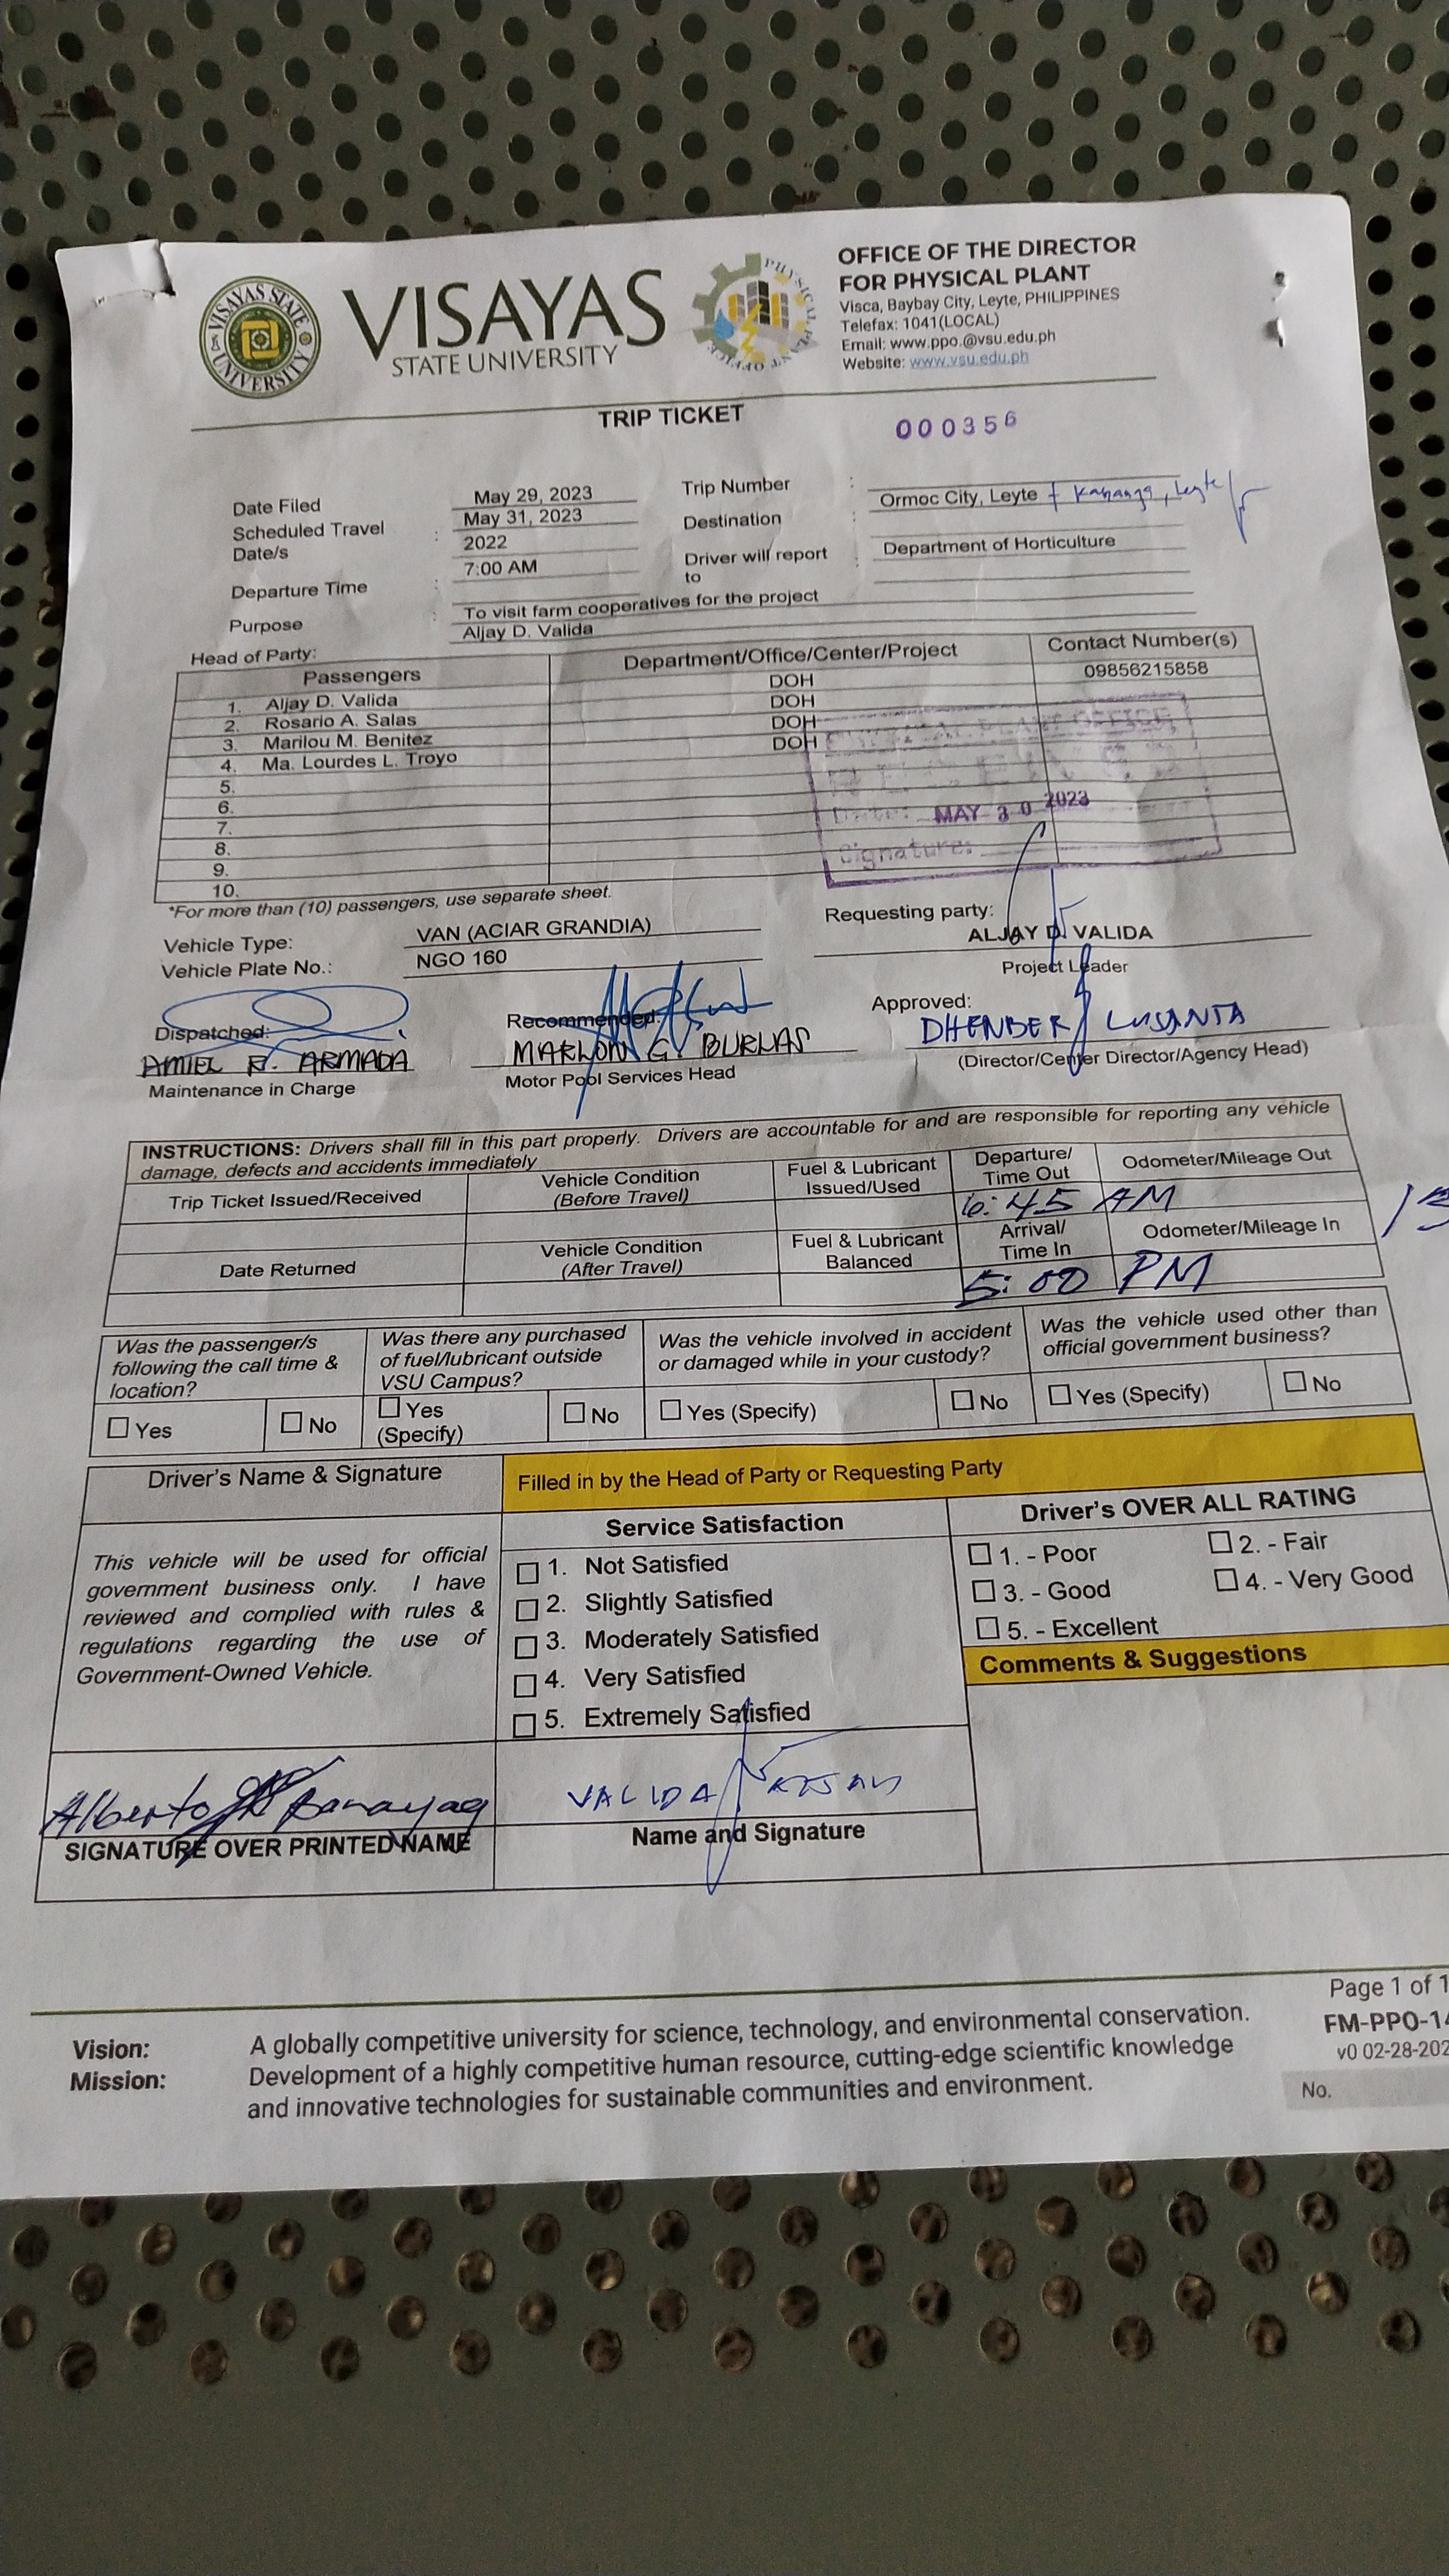 VISAYAS STATE UNIVERSITY
VISAYAS
STATE UNIVERSITY
PHYSICAL PLANT OFFICE
OFFICE OF THE DIRECTOR
FOR PHYSICAL PLANT
Visca, Baybay City, Leyte, PHILIPPINES
Telefax: 1041(LOCAL)
Email: www.ppo.@vsu.edu.ph
Website: www.vsu.edu.ph
TRIP TICKET
000356
Date Filed May 29, 2023 Trip Number :
Scheduled Travel Date/s : May 31, 2023 2022 Destination : Ormoc City, Leyte + Kananga, Leyte
Departure Time : 7:00 AM Driver will report to : Department of Horticulture
Purpose : To visit farm cooperatives for the project
Head of Party: Aljay D. Valida
Passengers Department/Office/Center/Project Contact Number(s)
1. Aljay D. Valida DOH 09856215858
2. Rosario A. Salas DOH
3. Marilou M. Benitez DOH
4. Ma. Lourdes L. Troyo DOH
5.
6.
7.
8.
9.
10.
PHYSICAL PLANT OFFICE
Date: MAY 30 2023
Signature:
*For more than (10) passengers, use separate sheet.
Vehicle Type: VAN (ACIAR GRANDIA)
Vehicle Plate No.: NGO 160
Requesting party:
ALJAY D. VALIDA
Project Leader
Dispatched: Recommended: Approved:
AMIEL R. ARMADA MARLON G. BURLAS DHENBER LUSANTA
Maintenance in Charge Motor Pool Services Head (Director/Center Director/Agency Head)
INSTRUCTIONS: Drivers shall fill in this part properly. Drivers are accountable for and are responsible for reporting any vehicle
damage, defects and accidents immediately
Trip Ticket Issued/Received Vehicle Condition (Before Travel) Fuel & Lubricant Issued/Used Departure/ Time Out Odometer/Mileage Out
6:45 AM
Date Returned Vehicle Condition (After Travel) Fuel & Lubricant Balanced Arrival/ Time In Odometer/Mileage In
5:00 PM
Was the passenger/s following the call time & location? Was there any purchased of fuel/lubricant outside VSU Campus? Was the vehicle involved in accident or damaged while in your custody? Was the vehicle used other than official government business?
Yes No Yes (Specify) No Yes (Specify) No Yes (Specify) No
Driver's Name & Signature Filled in by the Head of Party or Requesting Party
Service Satisfaction Driver's OVER ALL RATING
This vehicle will be used for official
government business only. I have
reviewed and complied with rules &
regulations regarding the use of
Government-Owned Vehicle.
1. Not Satisfied
2. Slightly Satisfied
3. Moderately Satisfied
4. Very Satisfied
5. Extremely Satisfied
1. - Poor 2. - Fair
3. - Good 4. - Very Good
5. - Excellent
Comments & Suggestions
Alberto Banayag VALIDA
SIGNATURE OVER PRINTED NAME Name and Signature
Page 1 of 1
FM-PPO-14
v0 02-28-202
No.
Vision: A globally competitive university for science, technology, and environmental conservation.
Mission: Development of a highly competitive human resource, cutting-edge scientific knowledge
and innovative technologies for sustainable communities and environment.